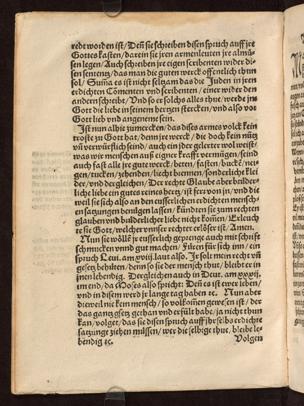 redt worden ist/ Den sie schreiben disen spruch auff jre
Gottes kasten/ darein sie jren armen leuten jre almů
sen legen/ Auch schreiben jre eigen scribenten wider di
sen sententz/ das man die guten werck offentlich thun
sol/ Suma es ist nicht seltzam das die Juden in jren
erdichten Comenten und scribenten/ einer wider den
andern schreibt/ Und so er solchs alles thut/ werde jn
Gott die liebe in seinem hertzen stercken/ und also vor
Got lieb und angeneme sein.
Ist nun alhie zumercken/ das dises armes volck kein
trost zu Gott hat/ denn jre werck/ die doch kein nütz
un verwürfflich seind/ auch in jder gelerter wol weist/
was wir menschen auß eigner krafft vermügen/ seind
auch fast alle jre gute werck/ beten/ fasten/ bucken/ nei-
gen/ tucken/ zehenden/ liecht brennen/ sonderliche klei
der/ und dergleichen/ Der recht Glaube aber bruder-
lich liebe ein gutes reines hertz/ ist fern von jn/ und die
weil sie sich also an den eusserlichen erdichten mensch-
en satzungen benügen lassen/ künden sie zum rechten
glauben und bruderlicher liebe nicht komen/ Erleucht
re sie Got/ welcher unnser rechter erlöser ist/ Amen.
Nun sie wölle jr eusserlich gepreng auch mit schrifft
schmucken unnd gut machen/ Füren für sich jnn/ ein
spruch Levi. am xviij. laut also. Ir solt mein recht un
gesetz behalten/ denn so sie der mensch thut/ bleibt er in
jnen lebendig. Dergleichen auch in Deut. am xxxij.
im end/ da Moses also spricht: Den es ist ewer leben/
und in disem werd je lange tag haben ec. Nun aber
dieweil nie kein mensch/ so volkomen gewesen ist/ der
das gantz gesetz gethan und erfült habe/ ja nicht thun
kan/ volget/ das sie disen spruch auff jhr selbs erdichte
satzunge ziehen müssen/ wer die selbige thut/ bleibe le-
bendig ec.
Volgen